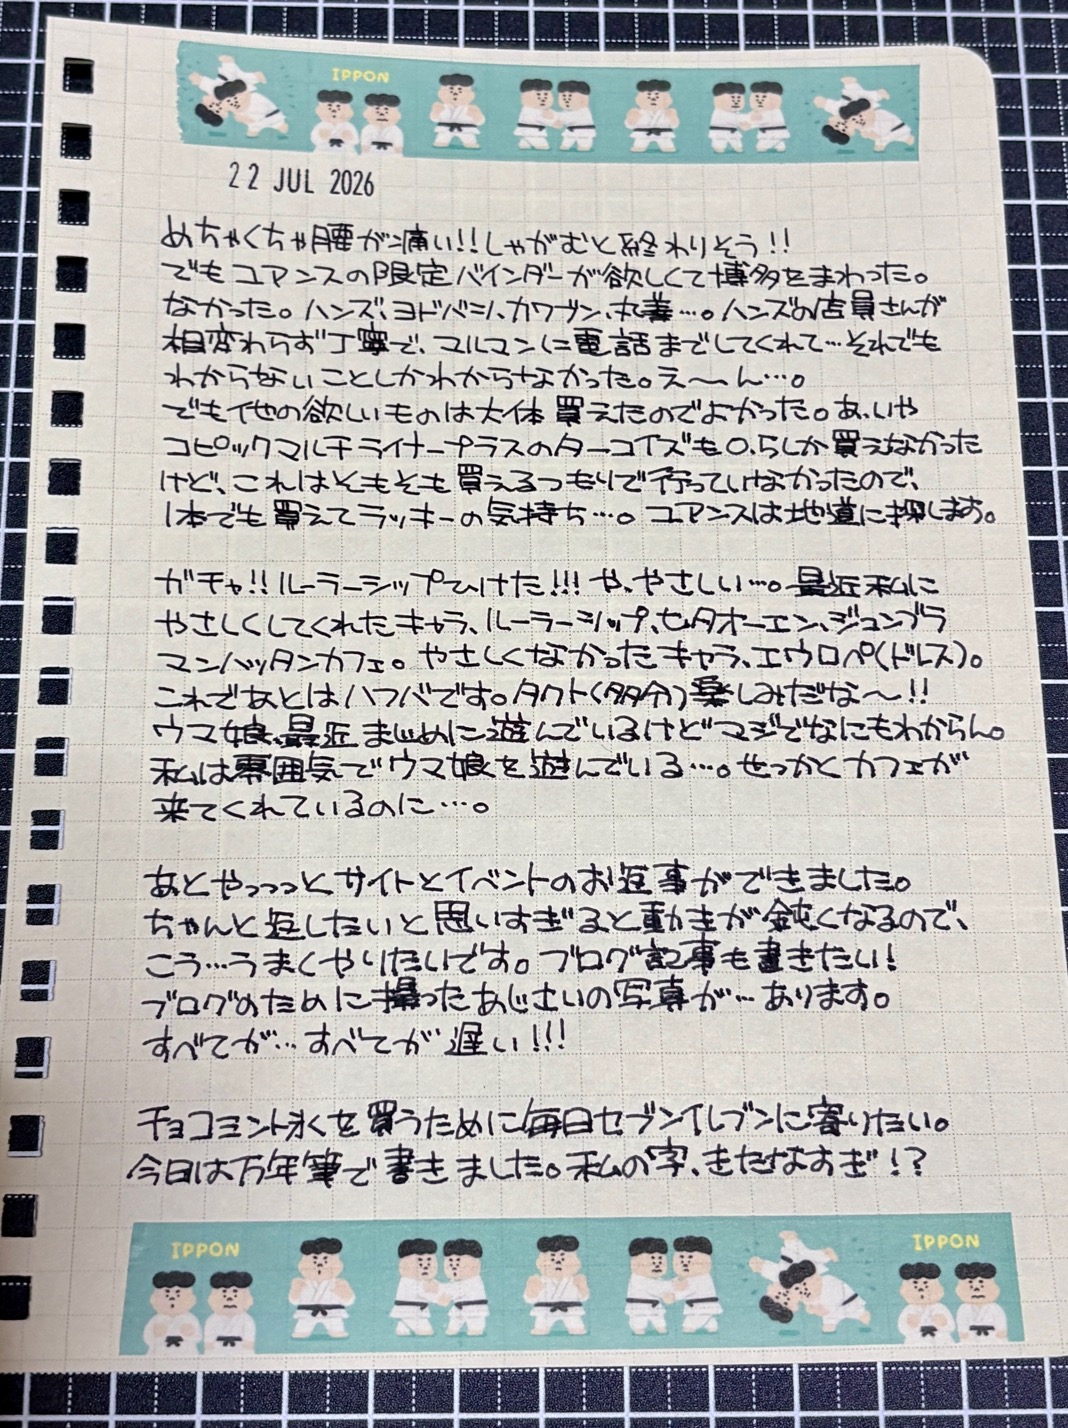 IPPON
22 JUL 2026
めちゃくちゃ腰が痛い!!しゃがむと終わりそう!!
でもユアンスの限定バインダーが欲しくて博多をまわった。
なかった。ハンズ、ヨドバシ、カワブン、丸善…。ハンズの店員さんが
相変わらず丁寧で、マルマンに電話までしてくれて…それでも
わからないことしかわからなかった。え〜ん…。
でも他の欲しいものは大体買えたのでよかった。あ、いや
コピックマルチライナープラスのターコイズも0.5しか買えなかった
けど、これはそもそも買えるつもりで行っていなかったので、
1本でも買えてラッキーの気持ち…。ユアンスは地道に探します。
ガチャ!!ルーラーシップひけた!!!や、やさしい…。最近私に
やさしくしてくれたキャラ、ルーラーシップ、七夕オーエン、ジューンブラ
マンハッタンカフェ。やさしくなかったキャラ、エウロペ(ドレス)。
これであとはハフバです。タクト(多分)楽しみだな〜!!
ウマ娘、最近まじめに遊んでいるけどマジでなにもわからん。
私は雰囲気でウマ娘を遊んでいる…。せっかくカフェが
来てくれているのに…。
あとやっっっとサイトとイベントのお返事ができました。
ちゃんと返したいと思いすぎると動きが鈍くなるので、
こう…うまくやりたいです。ブログ記事も書きたい!
ブログのために撮ったあじさいの写真が…あります。
すべてが…すべてが遅い!!!
チョコミント氷を買うために毎日セブンイレブンに寄りたい。
今日は万年筆で書きました。私の字、きたなすぎ!?
IPPON IPPON